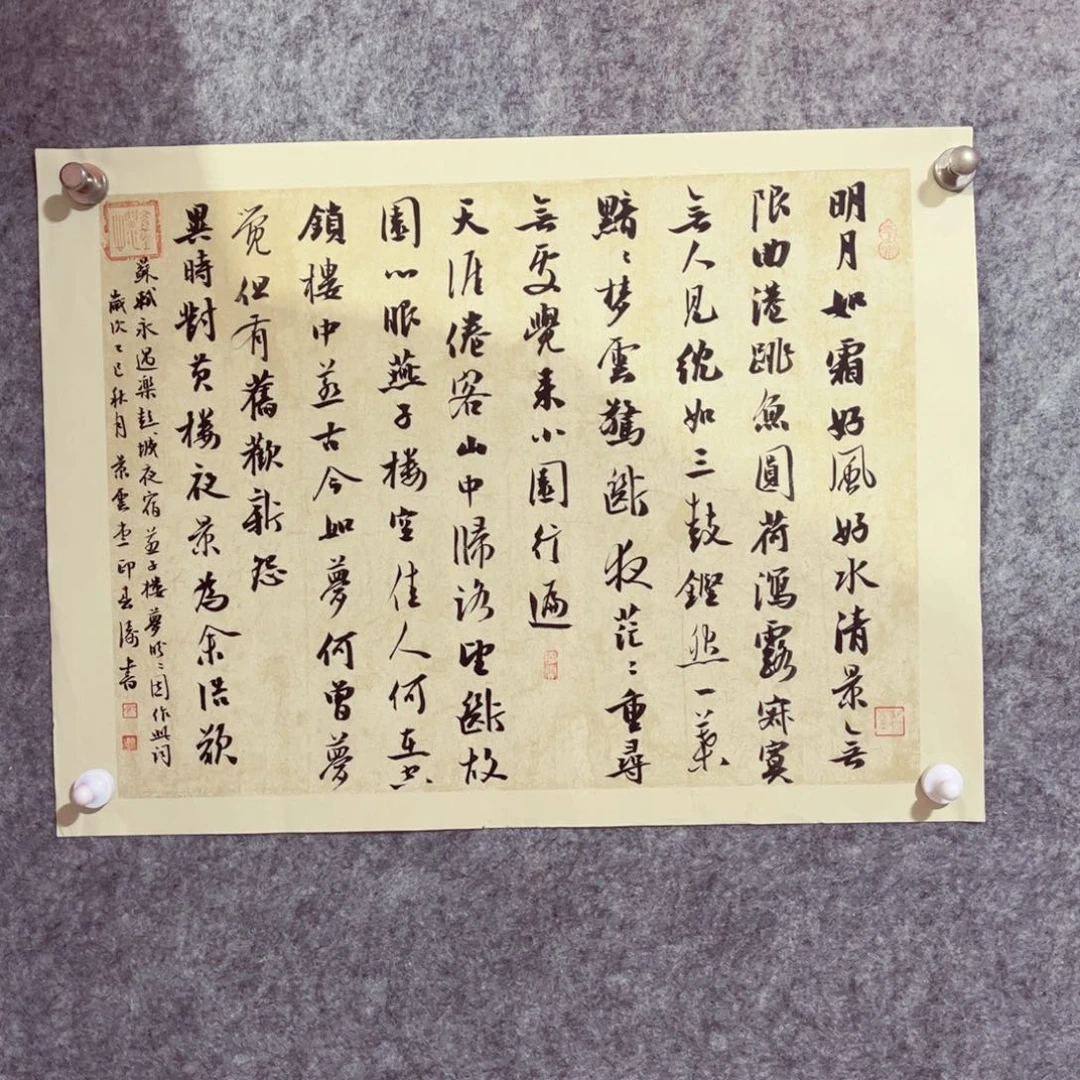 明月如霜好風好水清景無
限曲港跳魚圓荷瀉露寂寞
無人見紞如三鼓鏗然一葉
黯〻梦雲驚斷夜茫〻重尋
無處覺来小園行遍
天涯倦客山中歸路望斷故
園心眼燕子楼空佳人何在空
鎖樓中燕古今如夢何曾夢
覺但有舊歡新怨
異時對黄楼夜景為余浩歎
蘇軾永遇樂彭城夜宿燕子楼夢盼〻因作此詞
歲次乙巳秋月景雲書